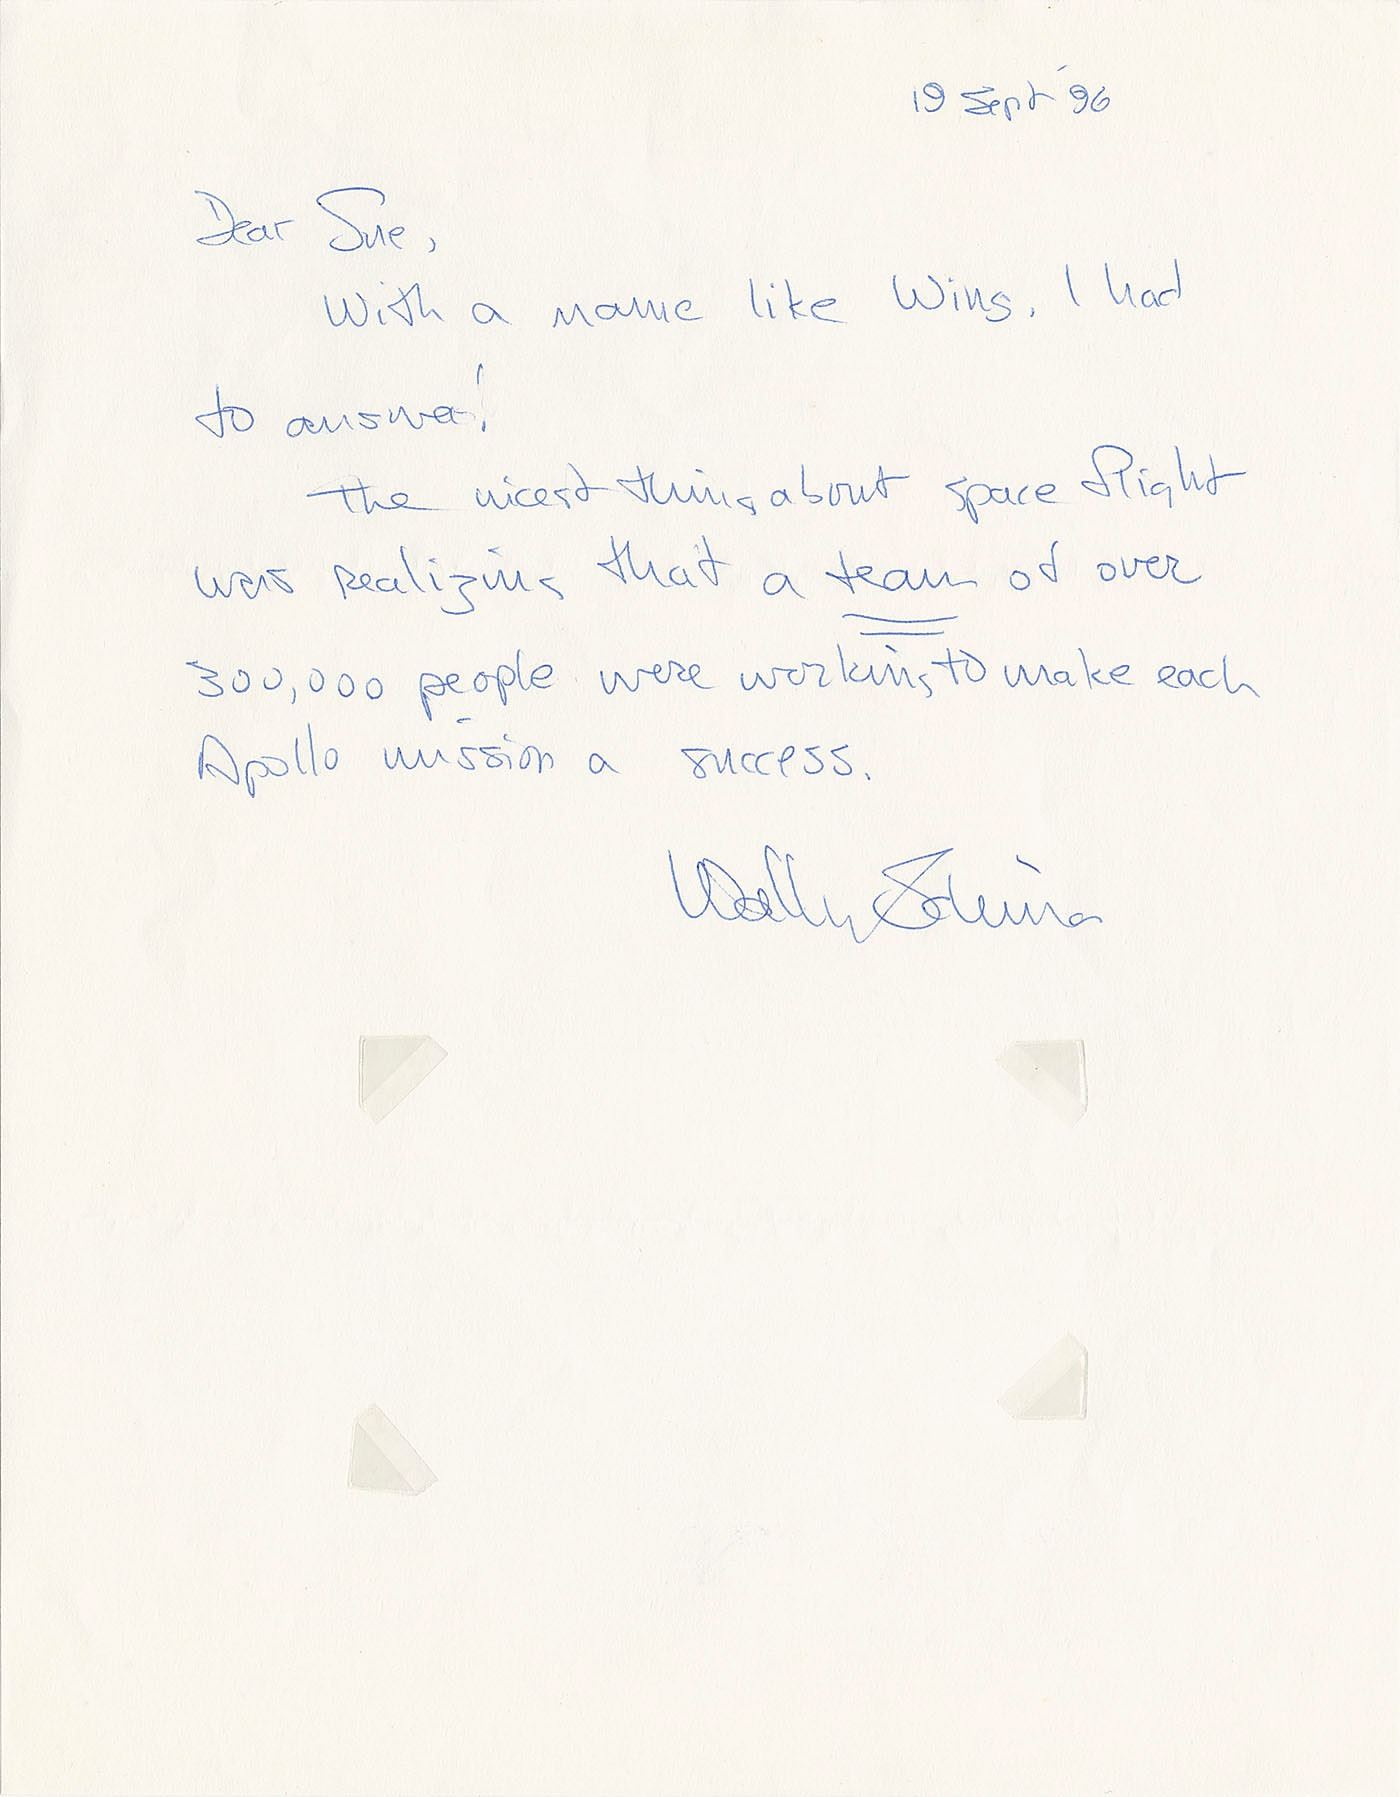 19 Sept '96
Dear Sue,
With a name like Wing, I had
to answer!
The nicest thing about space flight
was realizing that a team of over
300,000 people were working to make each
Apollo mission a success.
Wally Schirra